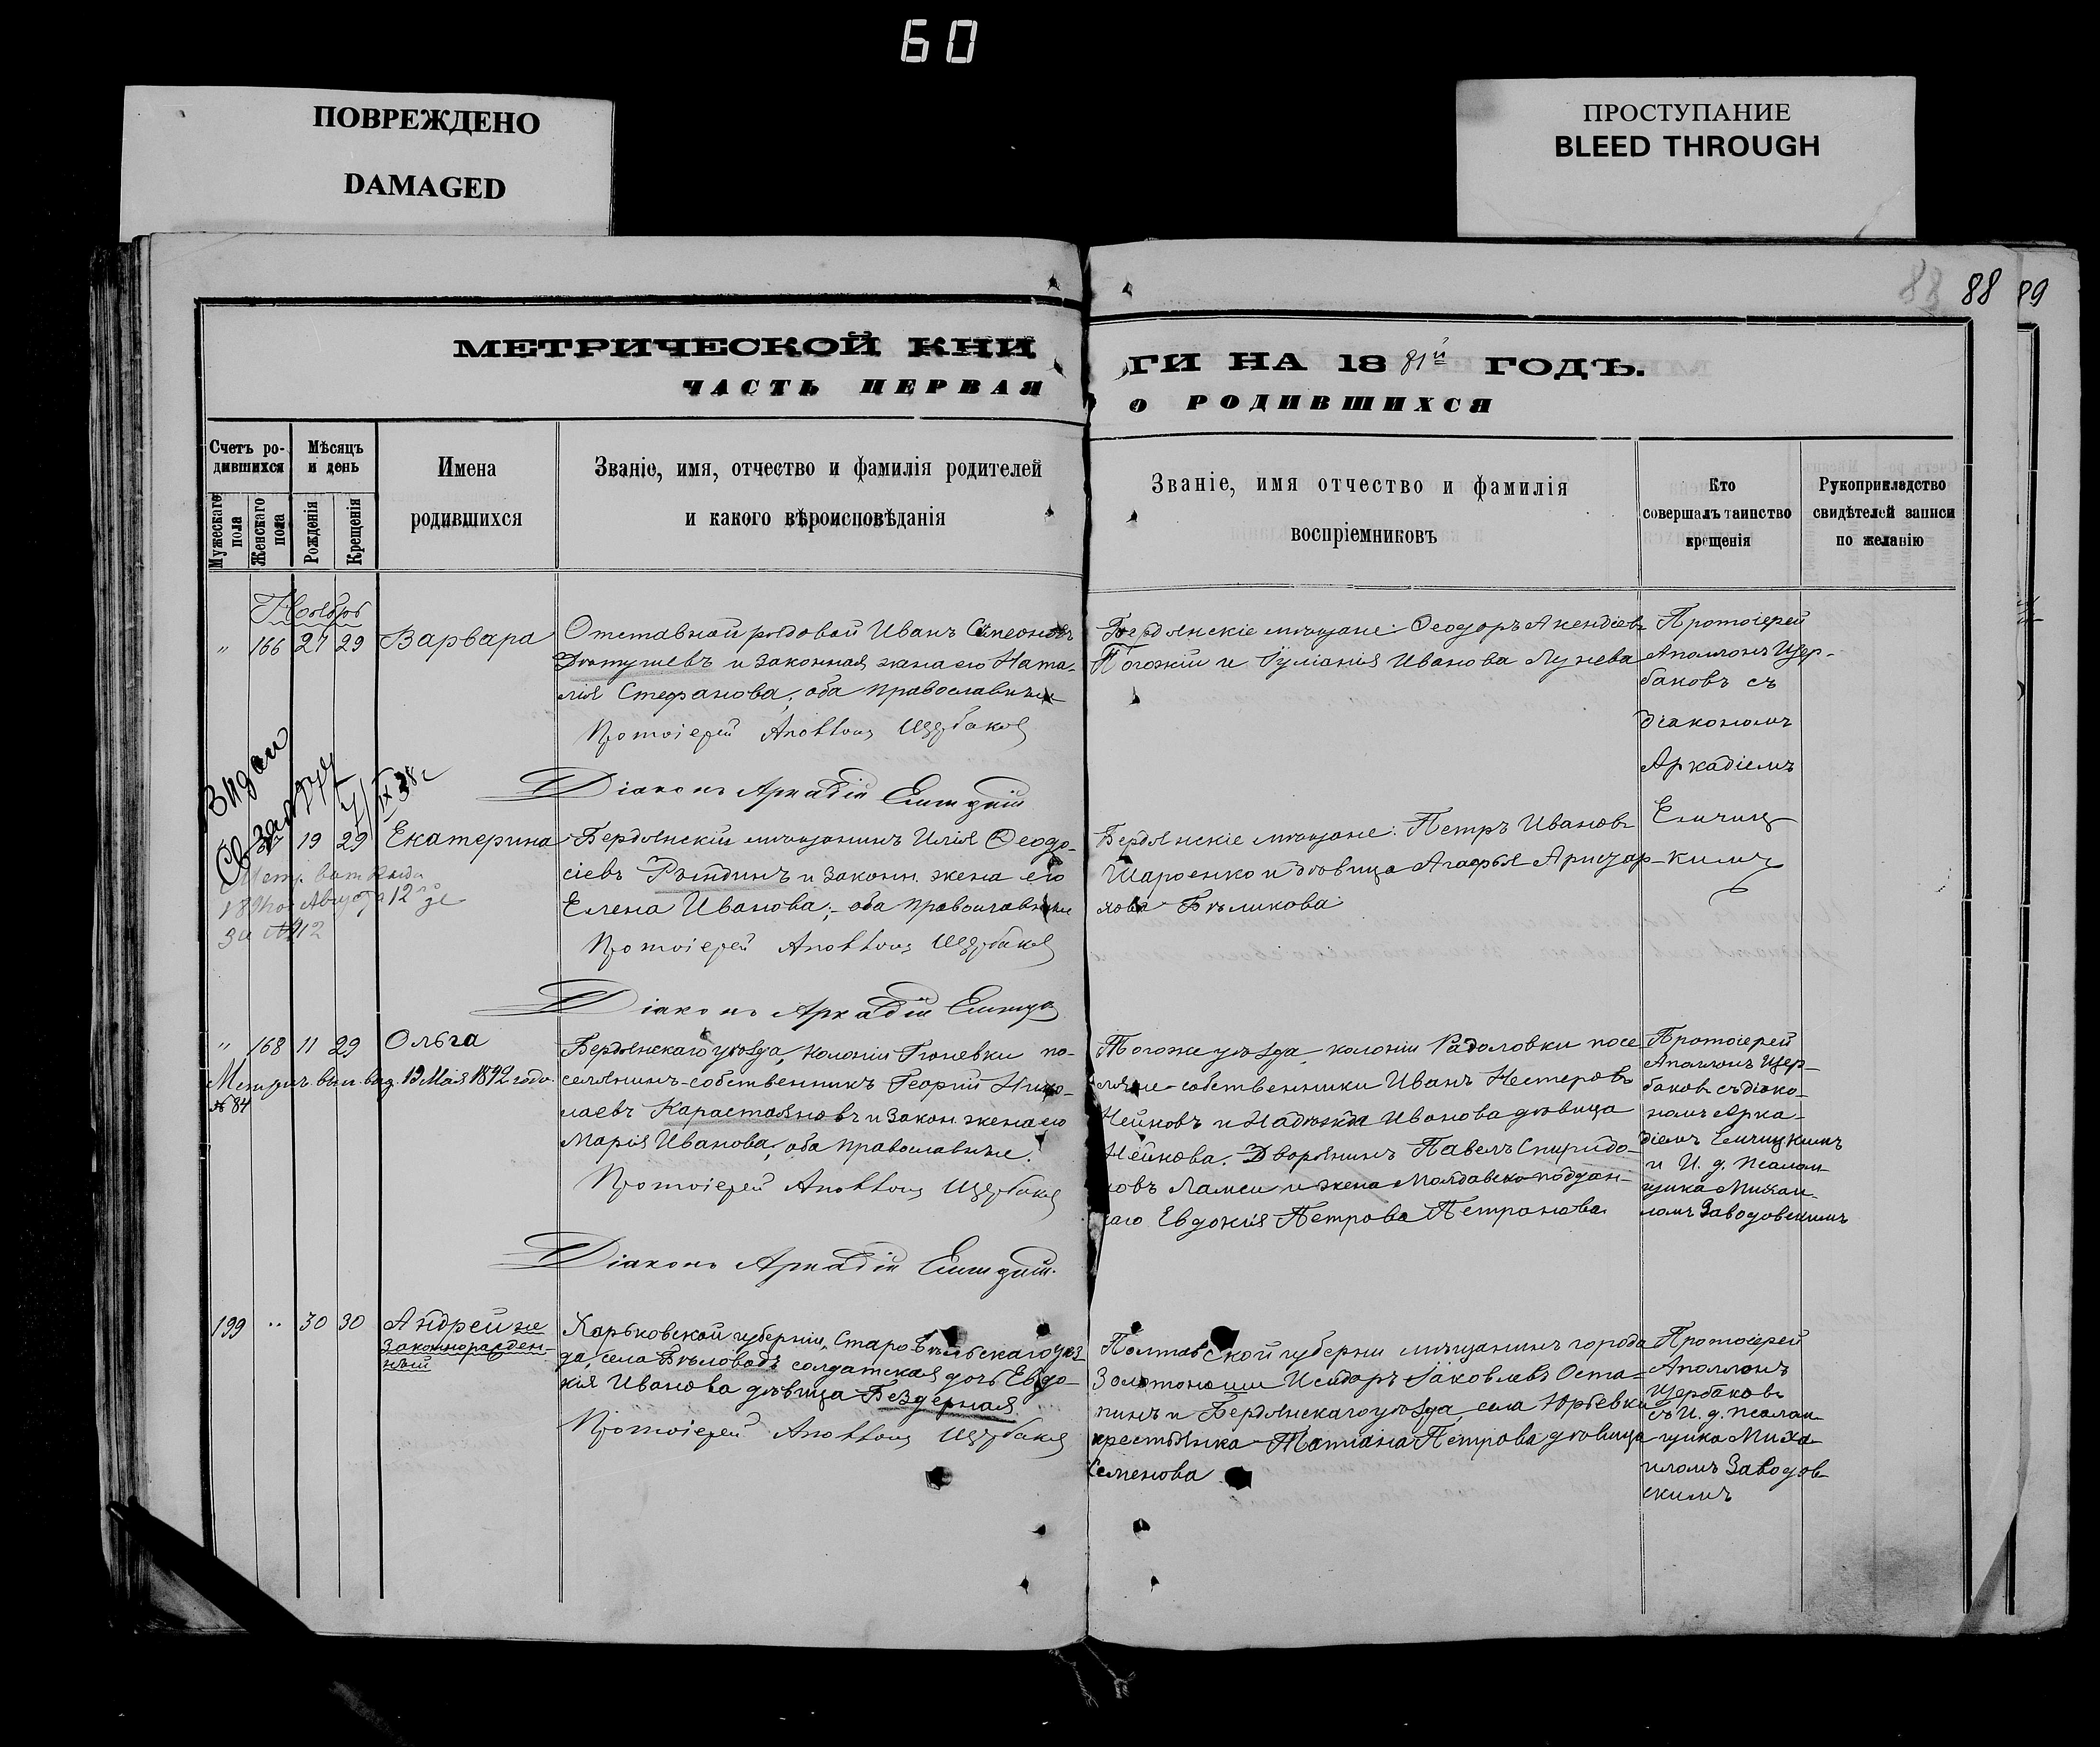 60
ПОВРЕЖДЕНО
DAMAGED
ПРОСТУПАНИЕ
BLEED THROUGH
88 88 89
МЕТРИЧЕСКОЙ КНИ
ЧАСТЬ ПЕРВАЯ
ГИ НА 18 81й ГОДЪ.
О РОДИВШИХСЯ
Счетъ ро-
дившихся
Мужескаго
пола
Женскаго
пола
Мѣсяцъ
и день
Рожденія
Крещенія
Имена
родившихся
Званіе, имя, отчество и фамилія родителей
и какого вѣроисповѣданія
Званіе, имя отчество и фамилія
воспріемниковъ
Кто
совершалъ таинство
крещенія
Рукоприкладство
свидѣтелей записи
по желанію
Ноябрь
" 166 27 29 Варвара
Отставной рядовой Иванъ Симеоновъ
и законная жена его Ната-
лія Стефанова, оба православные
Протоіерей Аполлонъ Щербаковъ
Діаконъ Аркадій
Бердянскіе мѣщане: Ѳеодоръ
Погожій и Іуліанія Иванова Лунева
Протоіерей
Аполлонъ Щер-
баковъ съ
діакономъ
Аркадіемъ
Елчиц-
кимъ
Выдан
19 29 Екатерина
Бердянскій мѣщанинъ Илія Ѳеодо-
сіевъ Рындинъ и законн. жена его
Елена Иванова, оба православные
Протоіерей Аполлонъ Щербаковъ
Діаконъ Аркадій
Бердянскіе мѣщане: Петръ Ивановъ
и дѣвица Агафья
Бѣликова
Августа 12
" 168 11 29 Ольга
Метрич. вып. выд. 19 Мая 1892 года
№ 84
Бердянскаго уѣзда, колоніи Гюневки по-
селянинъ-собственникъ Георгій Нико-
лаевъ Карастояновъ и закон. жена его
Марія Иванова, оба православные.
Протоіерей Аполлонъ Щербаковъ
Діаконъ Аркадій
Того же уѣзда, колоніи Радоловки посе-
ляне-собственники Иванъ Нестеровъ
Нейковъ и Надежда Иванова дѣвица
Нейкова. Дворянинъ Павелъ Спиридо-
новъ и жена Молдавско-поддан-
наго Евдокія Петрова Петранова
Протоіерей
Аполлонъ Щер-
баковъ съ діако-
номъ Арка-
діемъ Елчицкимъ
и И. д. псалом-
щика Михаи-
ломъ Заводовскимъ
199 " 30 30 Андрей не
законнорожден-
ный
Харьковской губерніи, Старобѣльскаго уѣз-
да, села Бѣловодъ солдатская дочь Евдо-
кія Иванова дѣвица Бездерная
Протоіерей Аполлонъ Щербаковъ
Полтавской губерніи мѣщанинъ города
Золотоноши Исидоръ Іаковлевъ Оста-
пинъ и Бердянскаго уѣзда, села Юрьевки
крестьянка Татіана Петрова дѣвица
Семенова
Протоіерей
Аполлонъ
Щербаковъ
съ И. д. псалом-
щика Миха-
иломъ Заводов-
скимъ